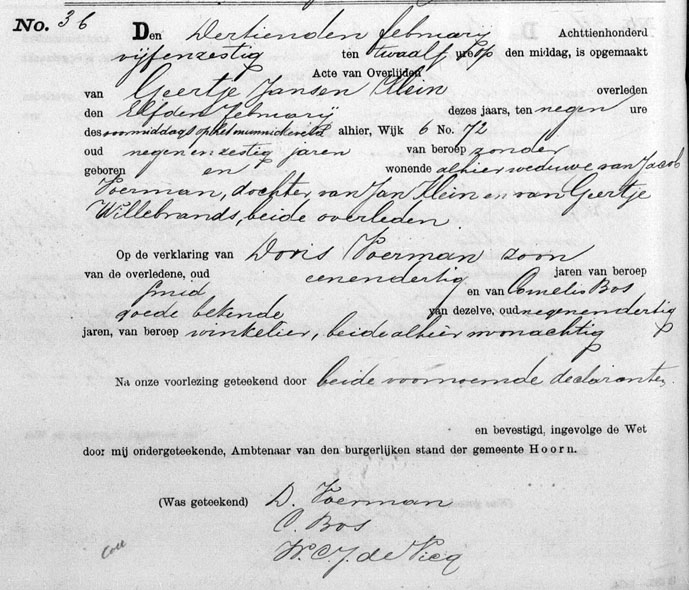 No. 36
Den Dertienden february Achttienhonderd
vijfenzestig ten twaalf ure op den middag, is opgemaakt
Acte van Overlijden
van Geertje Jansen Klein overleden
den Elfden februarij dezes jaars, ten negen ure
des voormiddags op het munnickeveld alhier, Wijk 6 No. 72
oud negenenzestig jaren van beroep zonder
geboren en wonende alhier weduwe van Jacob
Voerman, dochter van Jan Klein en van Geertje
Willebrands, beide overleden.
Op de verklaring van Doris Voerman zoon
van de overledene, oud eenendertig jaren van beroep
smid en van Cornelis Bos
goede bekende van dezelve, oud negenendertig
jaren, van beroep winkelier, beide alhier woonachtig
Na onze voorlezing geteekend door beide voornoemde declaranten.
en bevestigd, ingevolge de Wet
door mij ondergeteekende, Ambtenaar van den burgerlijken stand der gemeente Hoorn.
(Was geteekend) D. Voerman
C. Bos
W. C. J. de Vicq